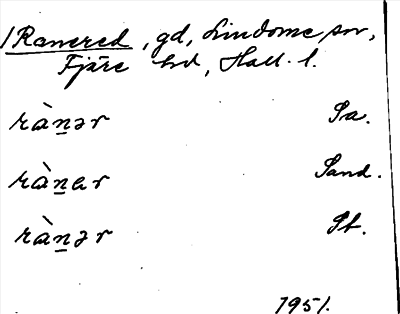 Ranered, gd, Lindome sn,
Fjäre hd, Hall. l.
rà̀nər Sa.
rànɐr Sand.
rànər St.
1951.